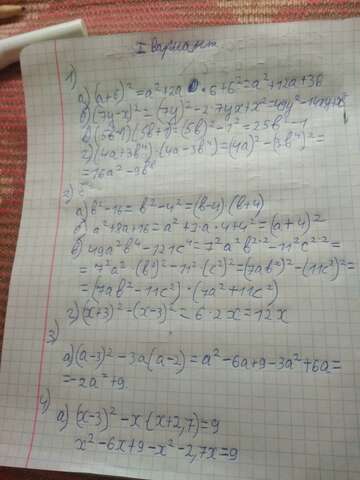 I вариант
1)
а) (а+6)²=а²+2а·6+6²=а²+12а+36
б) (7y-x)²=(7y)²-2·7yx+x²=49y²-14yx+x²
в) (5b-1)(5b+1)=(5b)²-1²=25b-1
г) (4a+3b⁴)·(4a-3b⁴)=(4a)²-(3b⁴)²=
=16a²-9b⁸
2)
а) b²-16=b²-4²=(b-4)·(b+4)
б) a²+8a+16=a²+2·a·4+4²=(a+4)²
в) 49a²b⁴-121c⁴=7²a²b²·²-11²c²·²=
=7²a²·(b²)²-11²(c²)²=(7ab²)²-(11c²)²=
=(7ab²-11c²)·(7a²+11c²)
г) (x+3)²-(x-3)²=6·2x=12x
3)
а) (a-3)²-3a(a-2)=a²-6a+9-3a²+6a=
=-2a²+9.
4)
а) (x-3)²-x·(x+2,7)=9
x²-6x+9-x²-2,7x=9